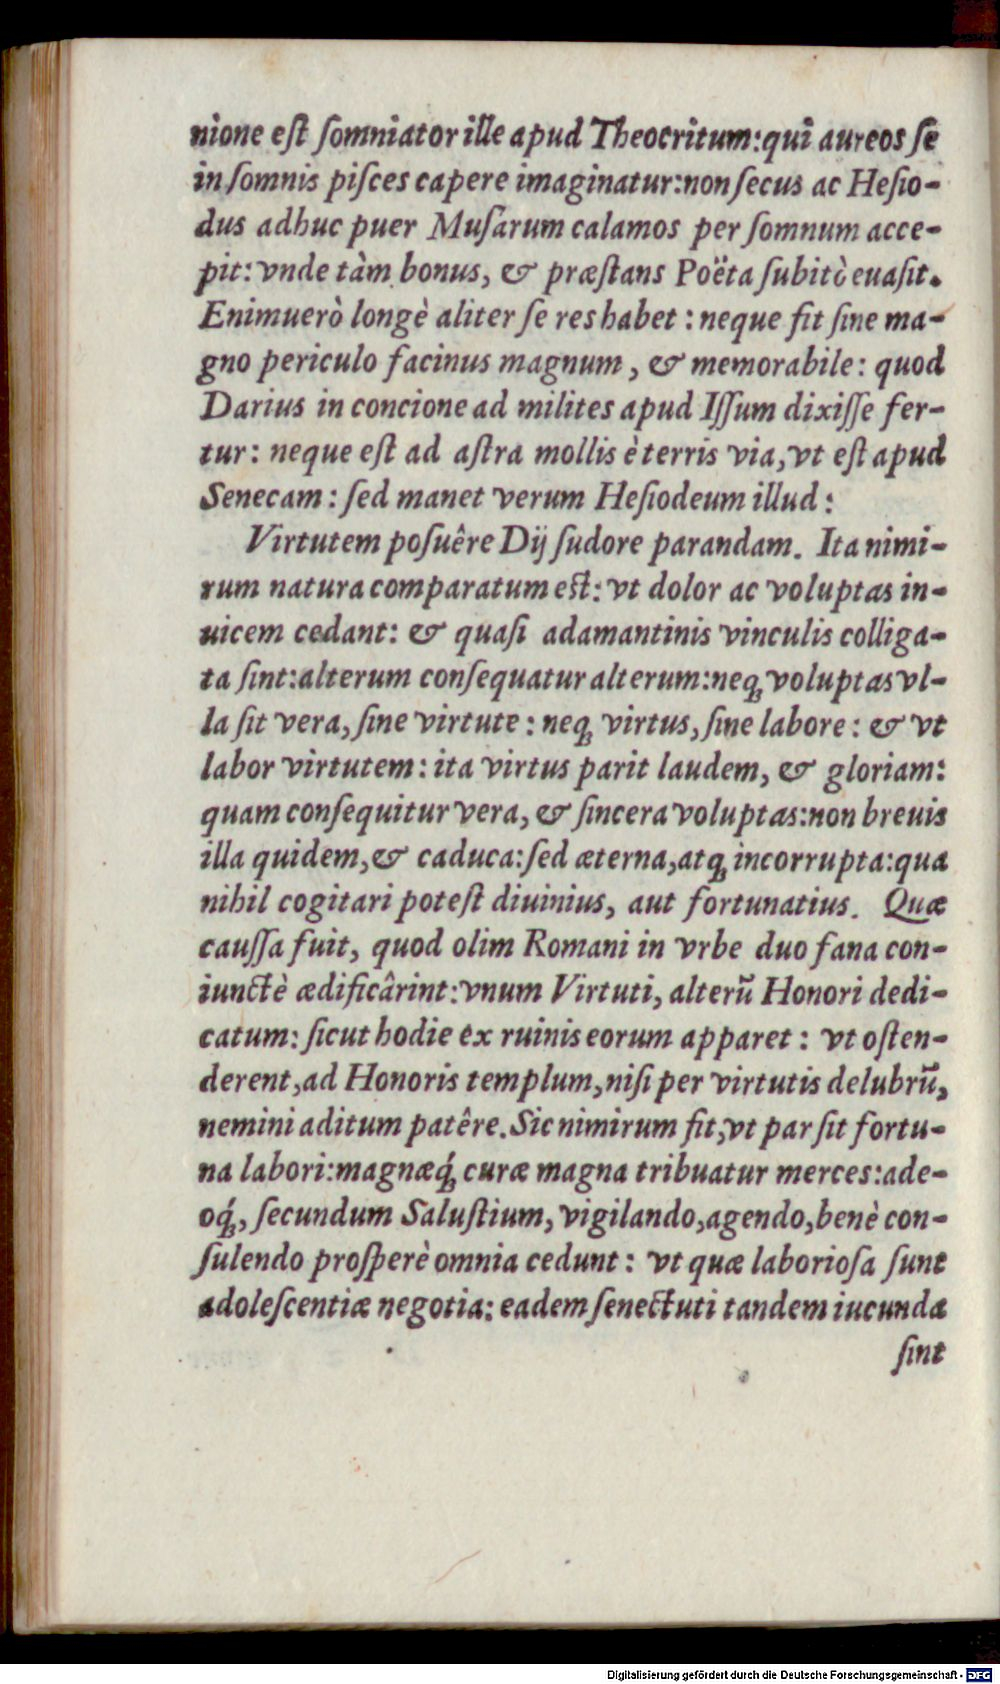 nione eſt ſomniator ille apud Theocritum: qui aureos ſe
in ſomnis piſces capere imaginatur: non ſecus ac Heſio-
dus adhuc puer Muſarum calamos per ſomnum acce-
pit: vnde tàm bonus, & præſtans Poëta ſubitò euaſit.
Enimuerò longè aliter ſe res habet: neque fit ſine ma-
gno periculo facinus magnum, & memorabile: quod
Darius in concione ad milites apud Iſſum dixiſſe fer-
tur: neque eſt ad aſtra mollis è terris via, vt eſt apud
Senecam: ſed manet verum Heſiodeum illud:
Virtutem poſuêre Dij ſudore parandam. Ita nimi-
rum natura comparatum est: vt dolor ac voluptas in-
uicem cedant: & quaſi adamantinis vinculis colliga-
ta ſint: alterum conſequatur alterum: neq; voluptas vl-
la ſit vera, ſine virtute: neq; virtus, ſine labore: & vt
labor virtutem: ita virtus parit laudem, & gloriam:
quam conſequitur vera, & ſincera voluptas: non breuis
illa quidem, & caduca: ſed æterna, atq; incorrupta: qua
nihil cogitari poteſt diuinius, aut fortunatius. Quæ
cauſſa fuit, quod olim Romani in vrbe duo fana con-
iunctè ædificârint: vnum Virtuti, alterũ Honori dedi-
catum: ſicut hodie ex ruinis eorum apparet: vt oſten-
derent, ad Honoris templum, niſi per virtutis delubrũ,
nemini aditum patêre. Sic nimirum fit, vt par ſit fortu-
na labori: magnæq́; curæ magna tribuatur merces: ade-
oq́;, ſecundum Saluſtium, vigilando, agendo, benè con-
ſulendo proſperè omnia cedunt: vt quæ laborioſa ſunt
adoleſcentiæ negotia: eadem ſenectuti tandem iucunda
ſint
Digitalisierung gefördert durch die Deutsche Forschungsgemeinschaft - DFG